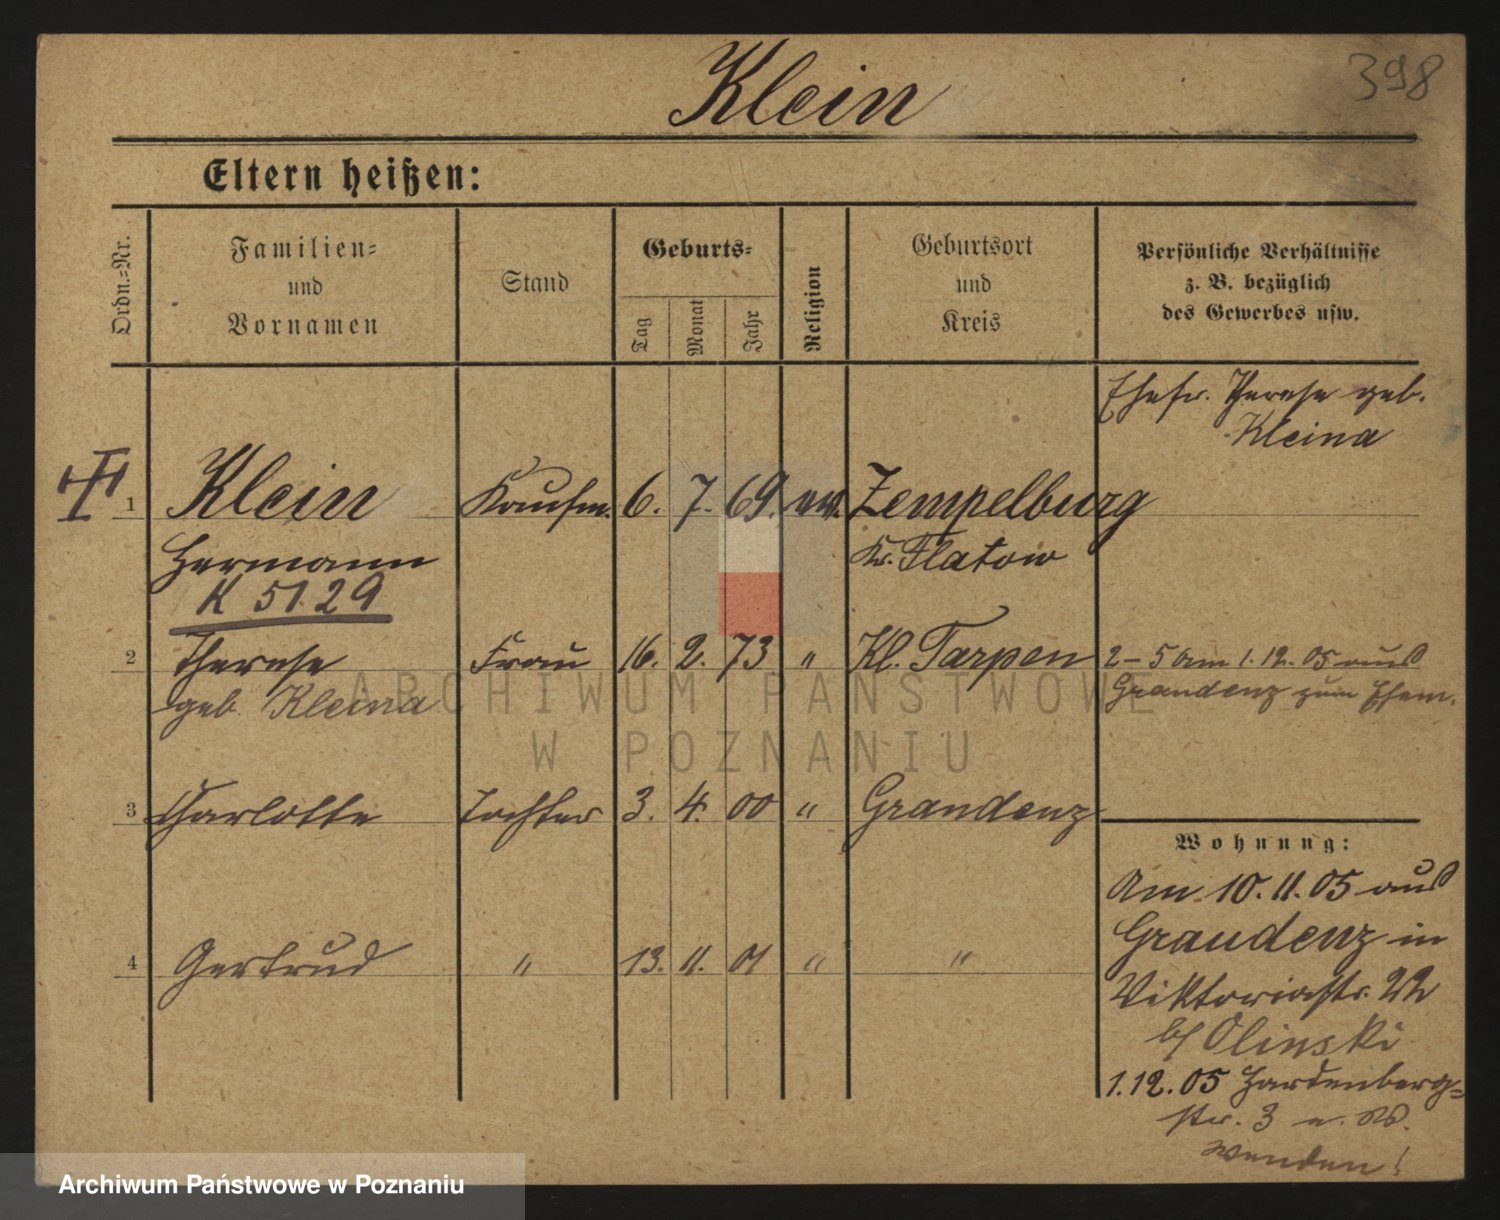 Klein
398
Eltern heißen:
Ordn.-Nr.
Familien-
und
Vornamen
Stand
Geburts-
Tag
Monat
Jahr
Religion
Geburtsort
und
Kreis
Persönliche Verhältnisse
z. B. bezüglich
des Gewerbes usw.
Ehefr. Therese geb.
Kleina
1 Klein Kaufm. 6. 7. 69. ev. Zempelburg
Hermann Kr. Flatow
K 51.29
2 Therese Frau 16. 2. 73 " Kl. Tarpen 2–5 am 1.12.05 aus
geb. Kleina Graudenz zum Ehem.
3 Charlotte Tochter 3. 4. 00 " Graudenz
Wohnung:
Am 10.11.05 aus
Graudenz in
4 Gertrud " 13. 11. 01 " "
Viktoriastr. 22
b/ Olinski
1.12.05 Hardenberg-
str. 3 a. W.
wenden!
ARCHIWUM PAŃSTWOWE
W POZNANIU
Archiwum Państwowe w Poznaniu